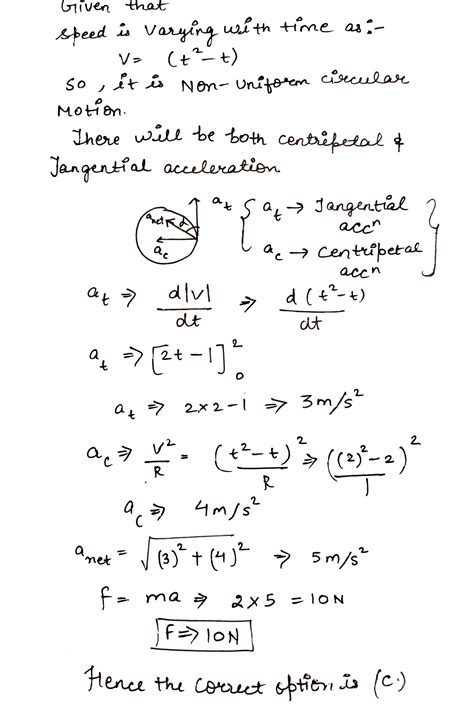 Given that
speed is varying with time as:-
V= (t²-t)
So, it is Non-uniform circular
Motion.
There will be both centripetal &
Tangential acceleration
a_net α a_c a_t { a_t → Tangential accⁿ
a_c → Centripetal accⁿ }
a_t ⇒ d|v|/dt ⇒ d(t²-t)/dt
a_t ⇒ [2t-1]²₀
a_t ⇒ 2×2-1 ⇒ 3m/s²
a_c ⇒ V²/R = (t²-t)²/R ⇒ ((2)²-2)²/1
a_c ⇒ 4m/s²
a_net = √(3)²+(4)² ⇒ 5m/s²
f= ma ⇒ 2×5 = 10N
F⇒10N
Hence the correct option is (c.)